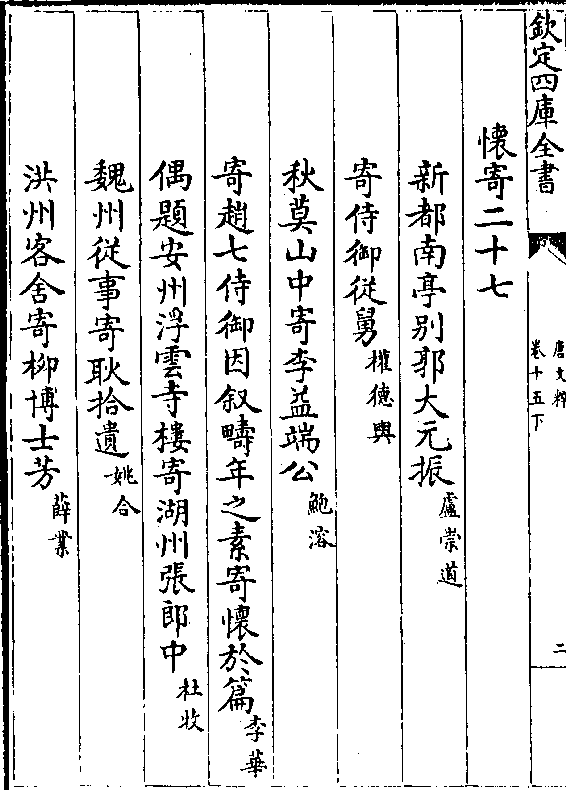 欽定四庫全書
唐文粹
卷十五下
二
懷寄二十七
新都南亭别郭大元振盧崇道
寄侍御從舅權德輿
秋莫山中寄李益端公鮑溶
寄趙七侍御因叙疇年之素寄懷於篇李華
偶題安州浮雲寺樓寄湖州張郎中杜牧
魏州從事寄耿拾遺姚合
洪州客舍寄柳博士芳薛業